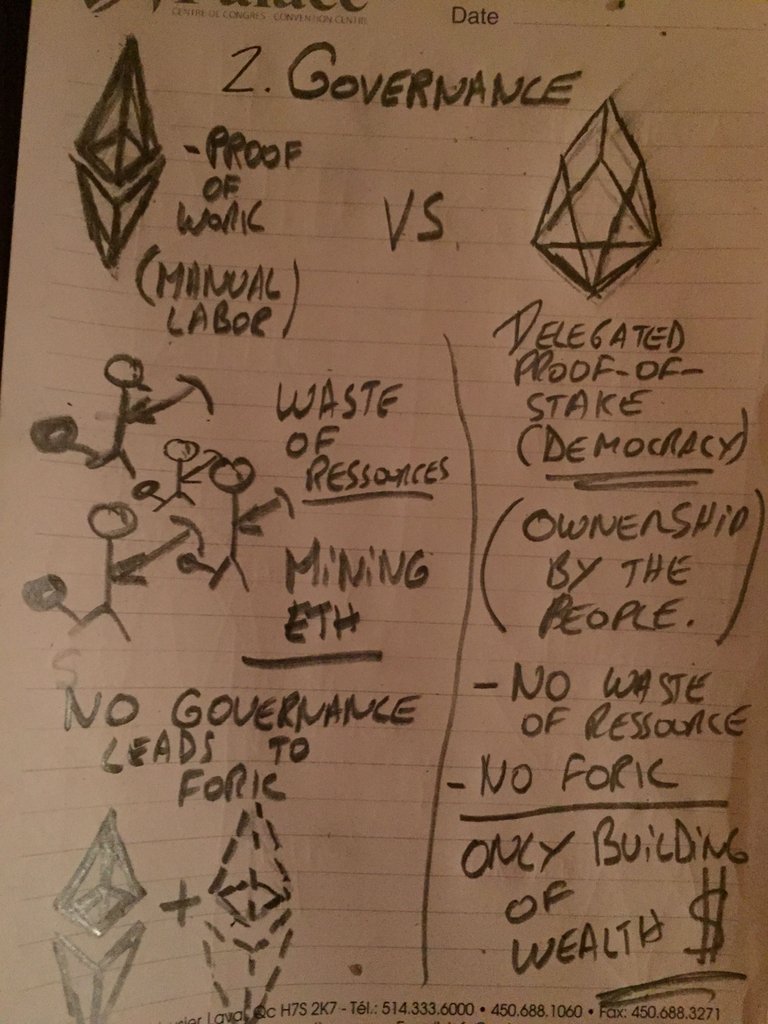 Palace
CENTRE DE CONGRÈS - CONVENTION CENTRE
Date
2. GOVERNANCE
- PROOF
OF
WORK
(MANUAL
LABOR)
VS.
WASTE
OF
RESSOURCES
MINING
ETH
NO GOVERNANCE
LEADS TO
FORK
+
DELEGATED
PROOF-OF-
STAKE
(DEMOCRACY)
(OWNERSHIP
BY THE
PEOPLE.)
- NO WASTE
OF RESSOURCE
- NO FORK
ONLY BUILDING
OF
WEALTH $
Laval Qc H7S 2K7 - Tél.: 514.333.6000 • 450.688.1060 • Fax: 450.688.3271